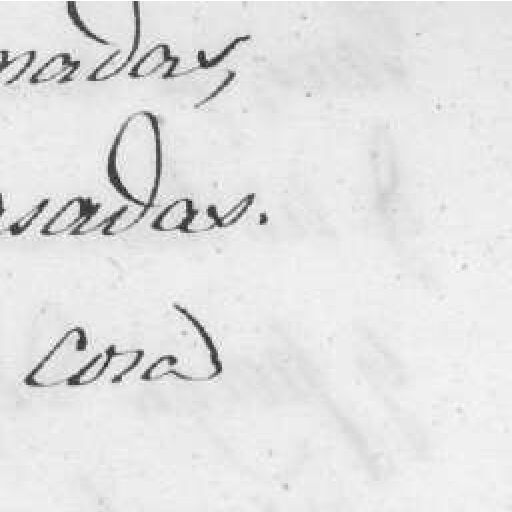 madas,
sadas.
Cora